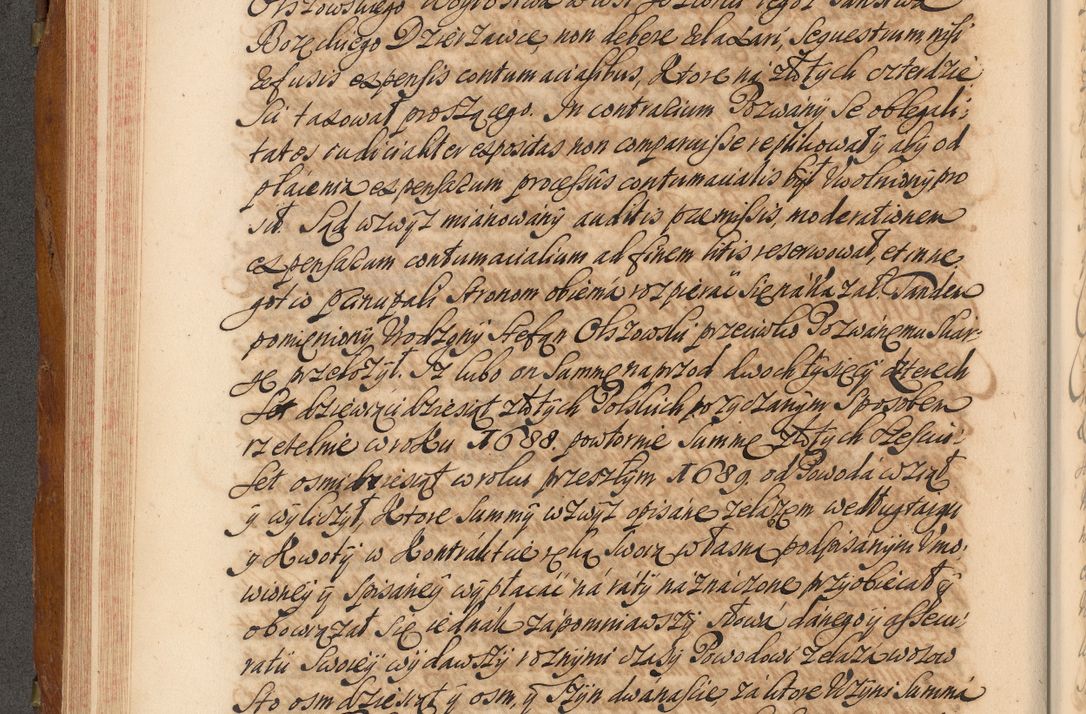 Olszowskiego
Bożęckiego Dzierzawcę, non debere relaxari, sequestrum nisi
refusis expensis contumacialibus, ktore na złotych czterdzie
sci taxował proszącego. In contrarium Pozwany se ob legali
tates iudicialiter expositas non comparuisse replikował y aby od
płacenia expensarum processus contumacialis był uwolniony pro
sił. Sąd wzwyż mianowany auditis praemissis, moderationem
expensarum contumacialium ad finem litis reserwował, et in ne
gotio principali stronom obiema rozpierać się nakazał. Tandem
pomieniony Urodzony Stefan Olszowski przeciwko Pozwanemu skar
gę przełożył. Iż lubo on summę naprzod dwoch tysięcy czterech
set dziewięci dziesiąt złotych Polskich pożyczanym sposobem
rzetelnie w roku 1688. powtornie summę złotych sześciu
set osmidziesiąt w roku przeszłym 1689. od Powoda wziął
y wyliczył, ktore summy wzwyż opisane żelazem według targu
y kwoty w kontrakcie ręką swoią własną podpisanym umo
wioney y spisaney wypłacać na raty naznaczone przyobiecał y
obowiązał się iednak zapomniawszy słowa danego y assecu
ratii swoiey wydawszy roznymi czasy Powodowi żelaza wozow
sto osm dziesiąt y osm, y szyn dwanascie, za ktore uczyni summa